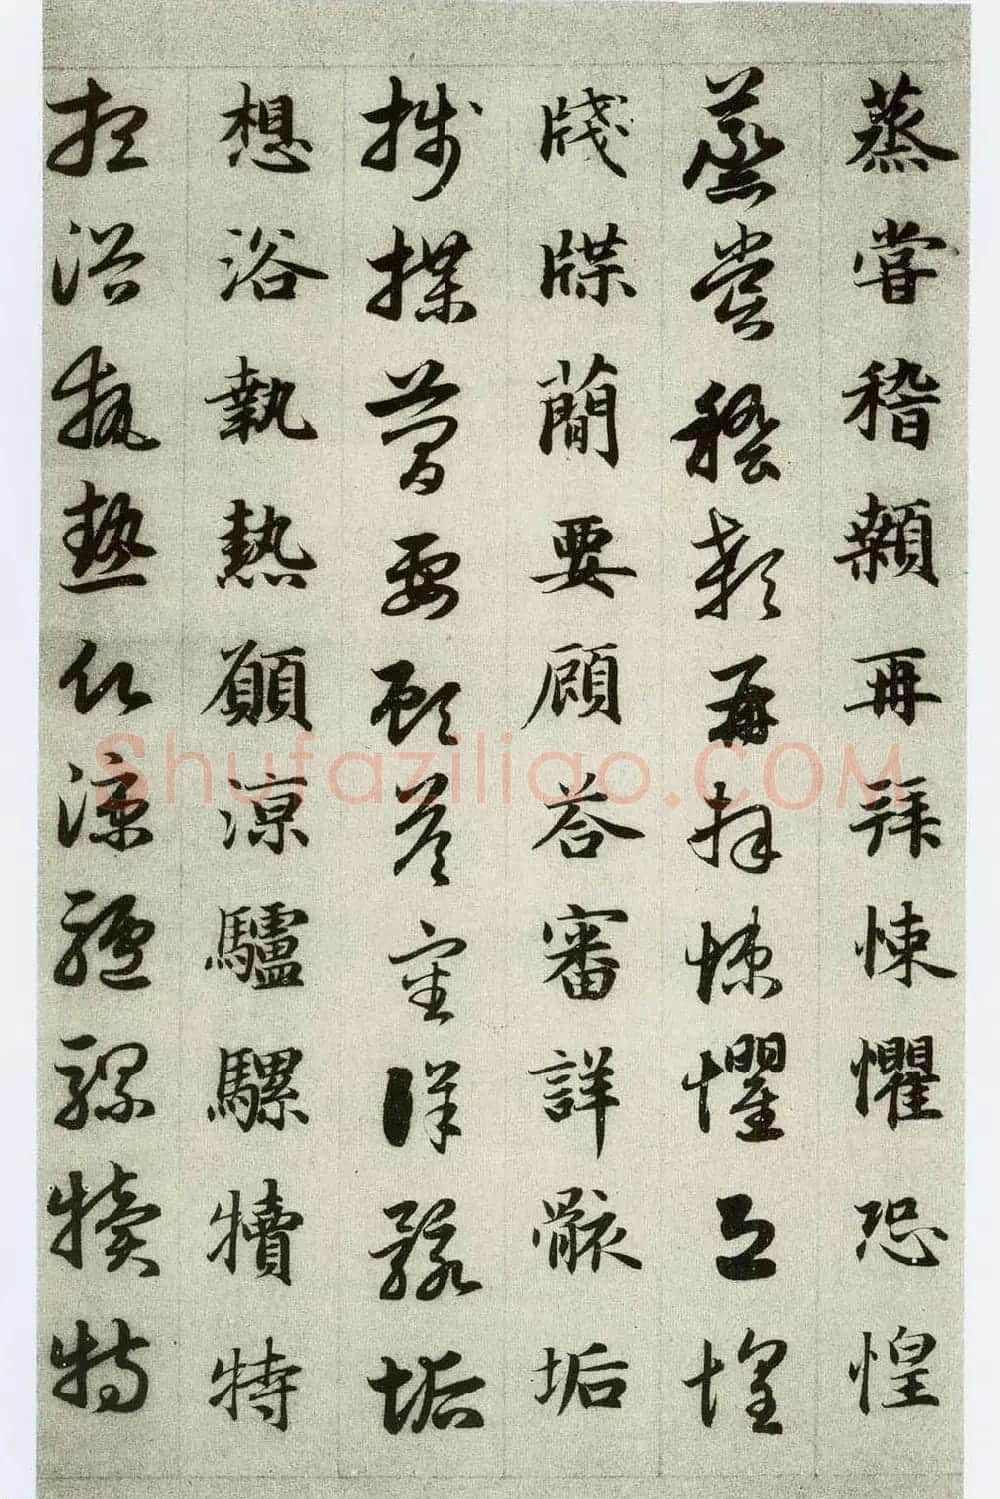 蒸嘗稽顙再拜悚懼恐惶
蒸嘗稽顙再拜悚懼恐惶
牋牒簡要顧荅審詳骸垢
牋牒簡要顧荅審詳骸垢
想浴執熱願涼驢騾犢特
想浴執熱願涼驢騾犢特
Shufaziliao.COM